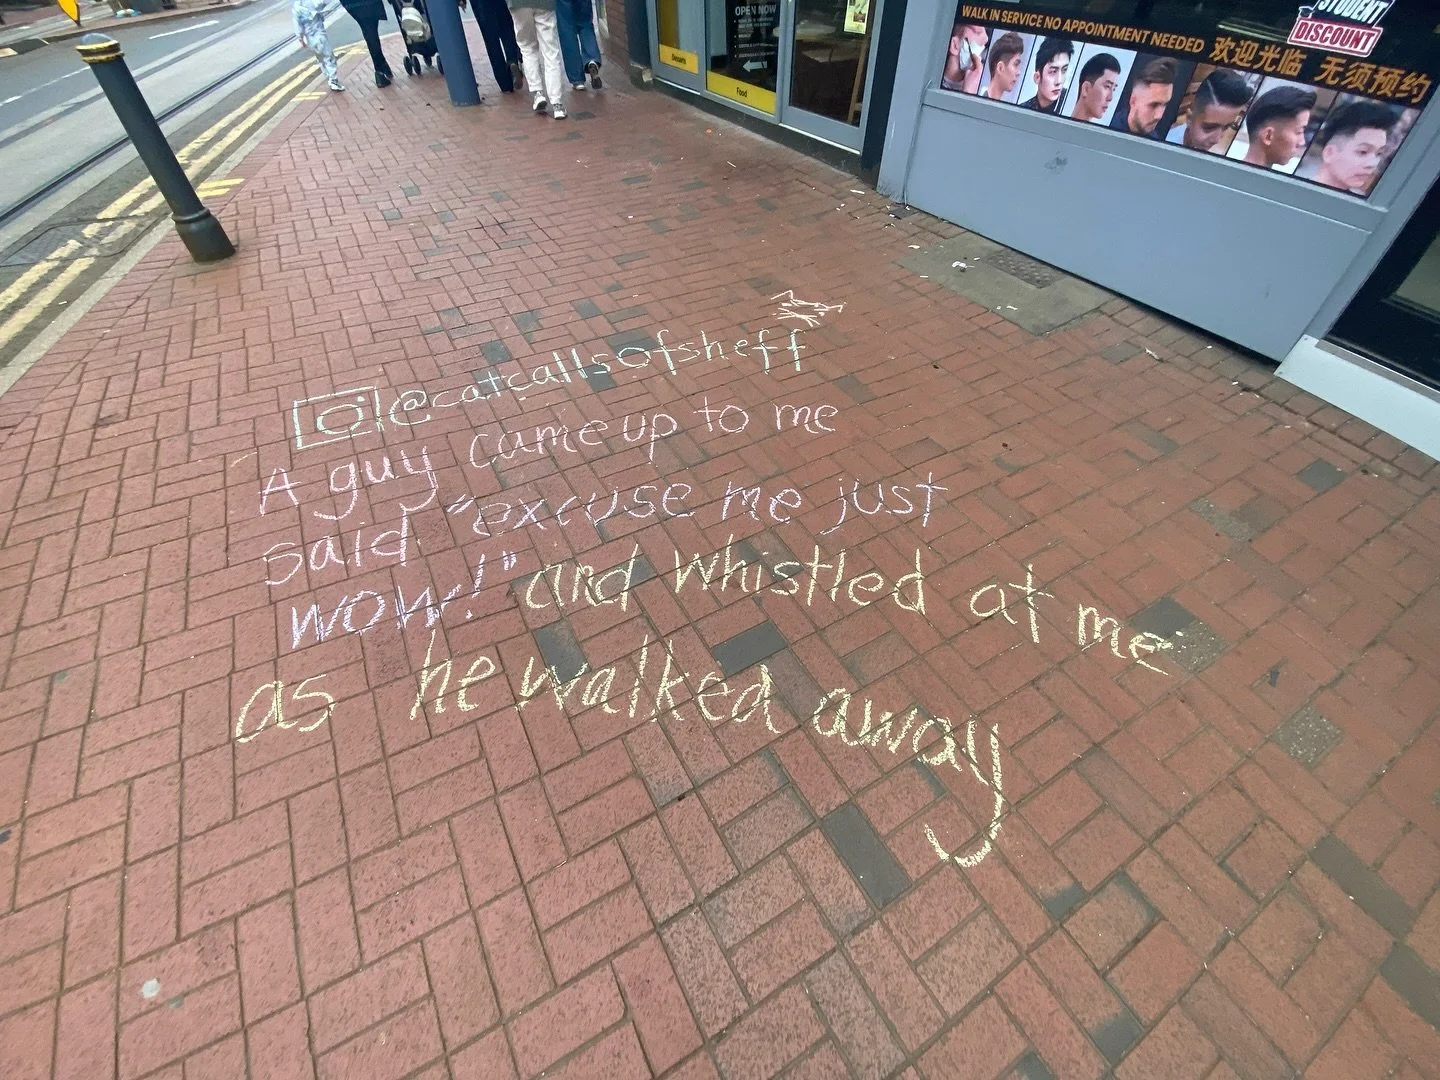 OPEN NOW
Desserts
Food
WALK IN SERVICE NO APPOINTMENT NEEDED 欢迎光临 无须预约
STUDENT
DISCOUNT
@catcallsofsheff
A guy came up to me
said "excuse me just
wow!" and whistled at me
as he walked away